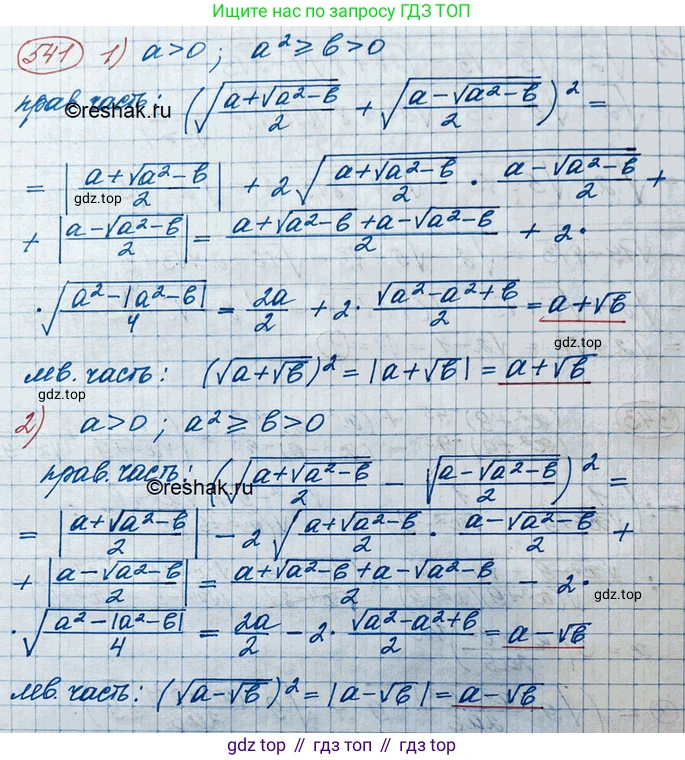 Ищите нас по запросу ГДЗ ТОП
541 1) a>0; a²≥b>0
прав. часть: (√((a+√(a²-b))/2) + √((a-√(a²-b))/2))² =
©reshak.ru
= |(a+√(a²-b))/2| + 2√((a+√(a²-b))/2 · (a-√(a²-b))/2) +
gdz.top
+ |(a-√(a²-b))/2| = (a+√(a²-b)+a-√(a²-b))/2 + 2·
·√((a²-|a²-b|)/4) = 2a/2 + 2·√(a²-a²+b)/2 = a+√b
gdz.top
лев. часть: (√(a+√b))² = |a+√b| = a+√b
gdz.top
2) a>0; a²≥b>0
прав. часть: (√((a+√(a²-b))/2) - √((a-√(a²-b))/2))² =
©reshak.ru
= |(a+√(a²-b))/2| - 2√((a+√(a²-b))/2 · (a-√(a²-b))/2) +
+ |(a-√(a²-b))/2| = (a+√(a²-b)+a-√(a²-b))/2 - 2·
gdz.top
·√((a²-|a²-b|)/4) = 2a/2 - 2·√(a²-a²+b)/2 = a-√b
лев. часть: (√(a-√b))² = |a-√b| = a-√b
gdz.top // гдз.топ // гдз топ // gdz top